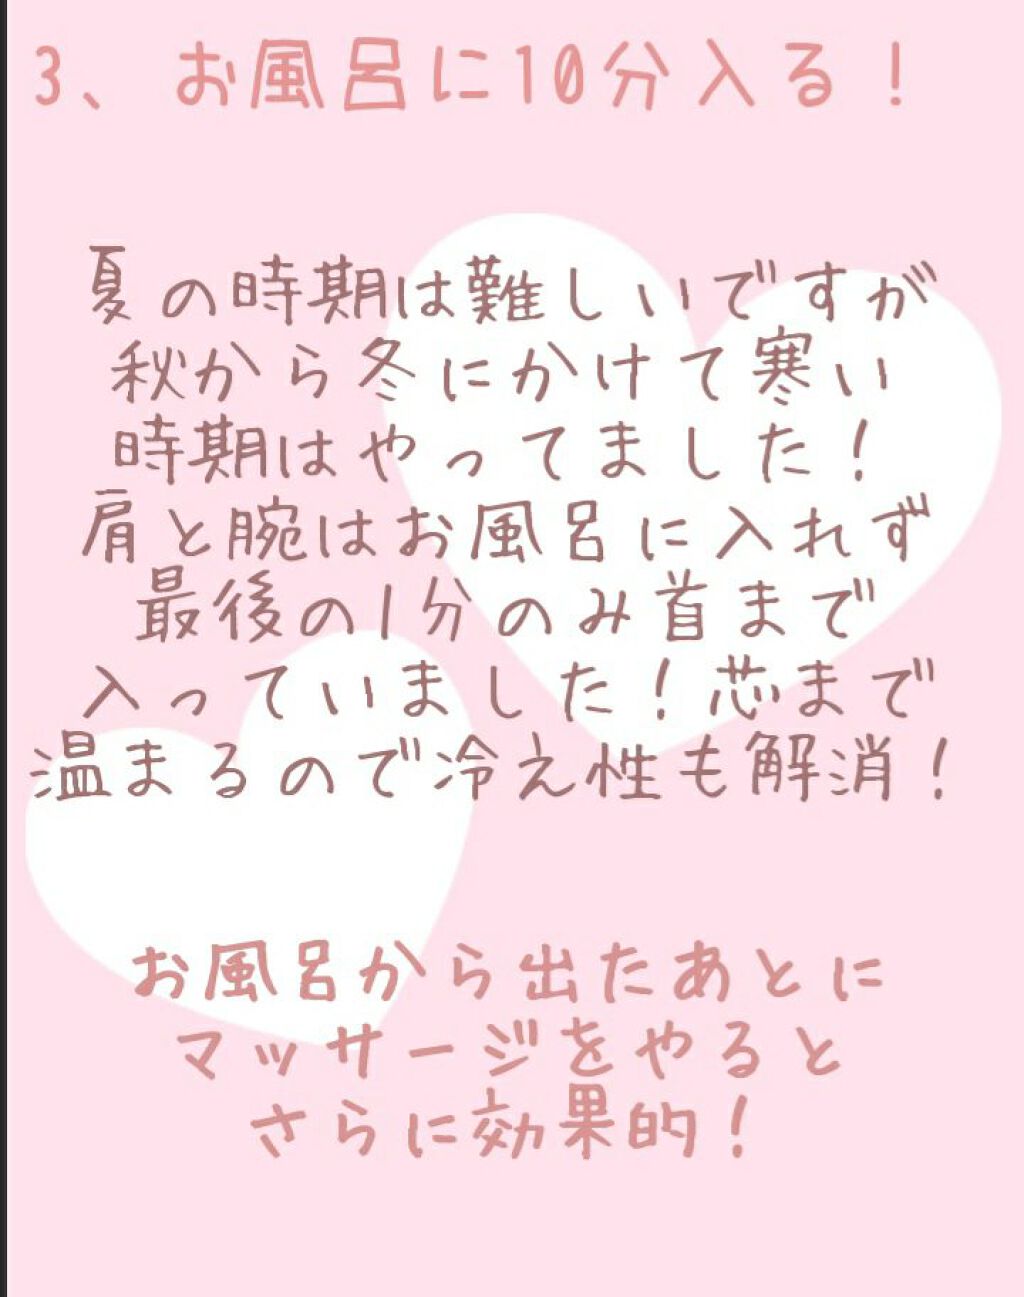 3、お風呂に10分入る！
夏の時期は難しいですが
秋から冬にかけて寒い
時期はやってました！
肩と腕はお風呂に入れず
最後の1分のみ首まで
入っていました！芯まで
温まるので冷え性も解消！
お風呂から出たあとに
マッサージをやると
さらに効果的！